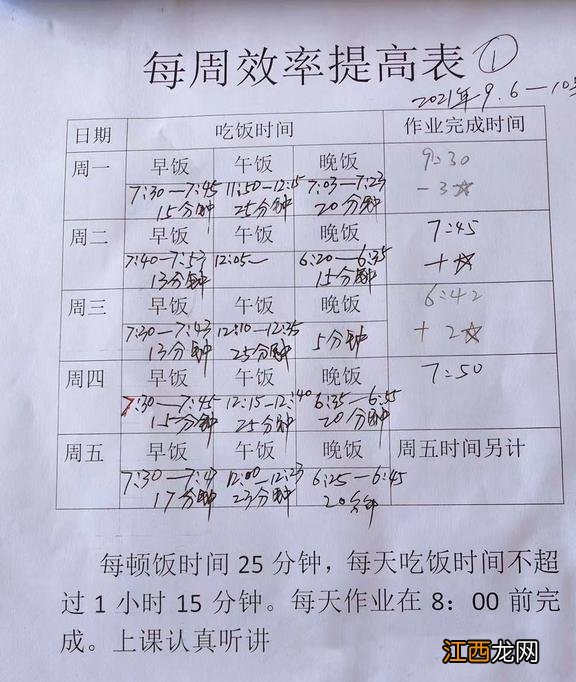 每周效率提高表 ①
2021年9.6—10号
日期 吃饭时间 作业完成时间
周一 早饭 午饭 晚饭 9:30
7:30—7:45 11:50—12:15 7:03—7:23 -3☆
15分钟 25分钟 20分钟
周二 早饭 午饭 晚饭 7:45
7:40—7:53 12:05— 6:20—6:35 +☆
13分钟 15分钟
周三 早饭 午饭 晚饭 6:42
7:30—7:43 12:10—12:35 5分钟 +2☆
13分钟 25分钟
周四 早饭 午饭 晚饭 7:50
7:30—7:45 12:15—12:40 6:35—6:55
15分钟 25分钟 20分钟
周五 早饭 午饭 晚饭 周五时间另计
7:30—7:47 12:00—12:23 6:25—6:45
17分钟 23分钟 20分钟
每顿饭时间 25 分钟，每天吃饭时间不超
过 1 小时 15 分钟。每天作业在 8：00 前完
成。上课认真听讲
江西龙网